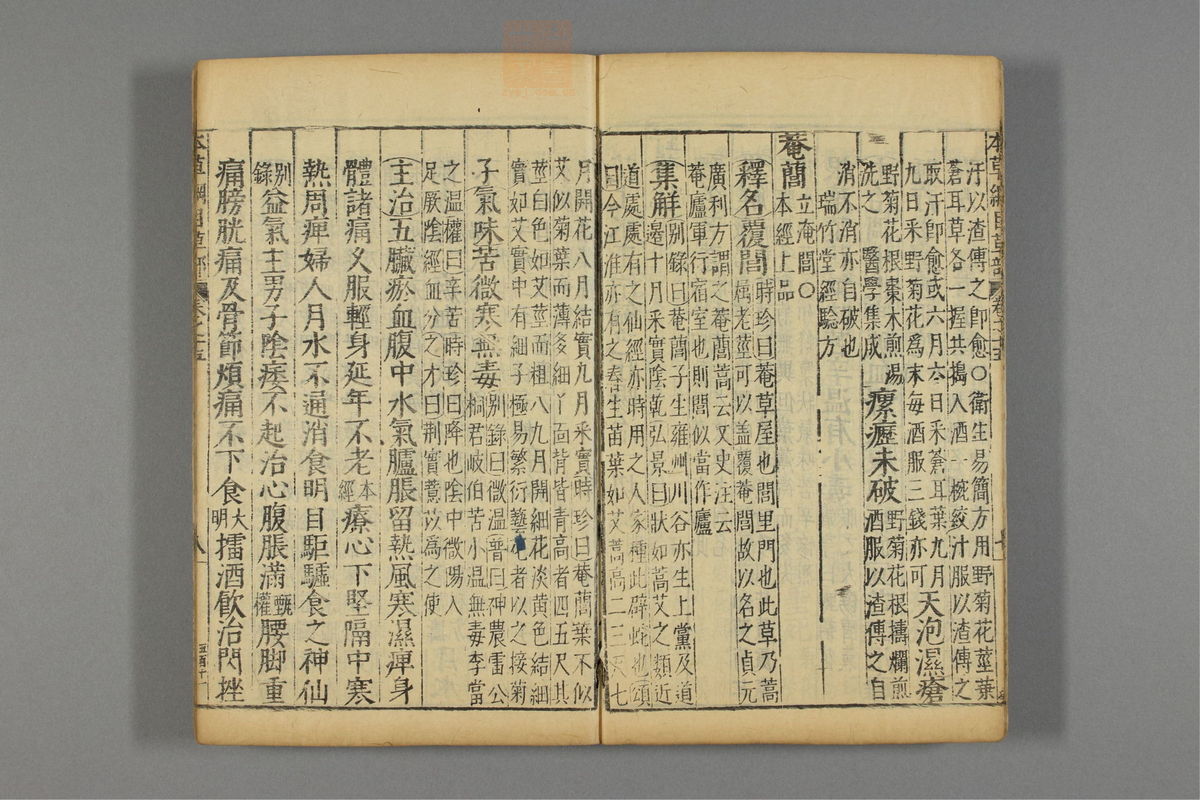 本草綱目草部
汁以渣傅之即愈○衛生易簡方用野菊花莖葉
蒼耳草各一握共搗入酒一椀絞汁服以渣傅之
取汗即愈或六月六日采蒼耳葉九月
九日采野菊花為末每酒服三錢亦可
天泡濕瘡
野菊花根棗木煎湯
洗之 醫學集成
瘰癧未破
野菊花根擣爛煎
酒服以渣傅之自
消不消亦自破也
瑞竹堂經驗方
菴䕡
立淹閭○
本經上品
釋名覆閭
時珍曰菴草屋也閭里門也此草乃蒿
屬老莖可以蓋覆菴閭故以名之貞元
廣利方謂之菴䕡蒿云又史注云
菴廬軍行宿室也則閭似當作廬
集解
别錄曰菴䕡子生雍州川谷亦生上黨及道
邊十月采實陰乾弘景曰狀如蒿艾之類近
道處處有之仙經亦時用之人家種此辟蛇也頌
曰今江淮亦有之春生苗葉如艾蒿高二三尺七
月開花八月結實九月采實時珍曰菴䕡葉不似
艾似菊葉而薄多細丫面背皆青高者四五尺其
莖白色如艾莖而粗八九月開細花淡黄色結細
實如艾實中有細子極易繁衍藝花者以之接菊
子氣味苦微寒無毒
别錄曰微温普曰神農雷公
桐君岐伯苦小温無毒李當
之温權曰辛苦時珍曰降也陰中微陽入
足厥陰經血分之才曰荆實薏苡為之使
主治五臟瘀血腹中水氣臚脹留熱風寒濕痺身
體諸痛久服輕身延年不老
本
經
療心下堅隔中寒
熱周痺婦人月水不通消食明目駏驉食之神仙
别
錄
益氣主男子陰痿不起治心腹脹滿
甄
權
腰脚重
痛膀胱痛及骨節煩痛不下食
大
明
擂酒飲治閃挫
本草綱目草部
卷之十五
八